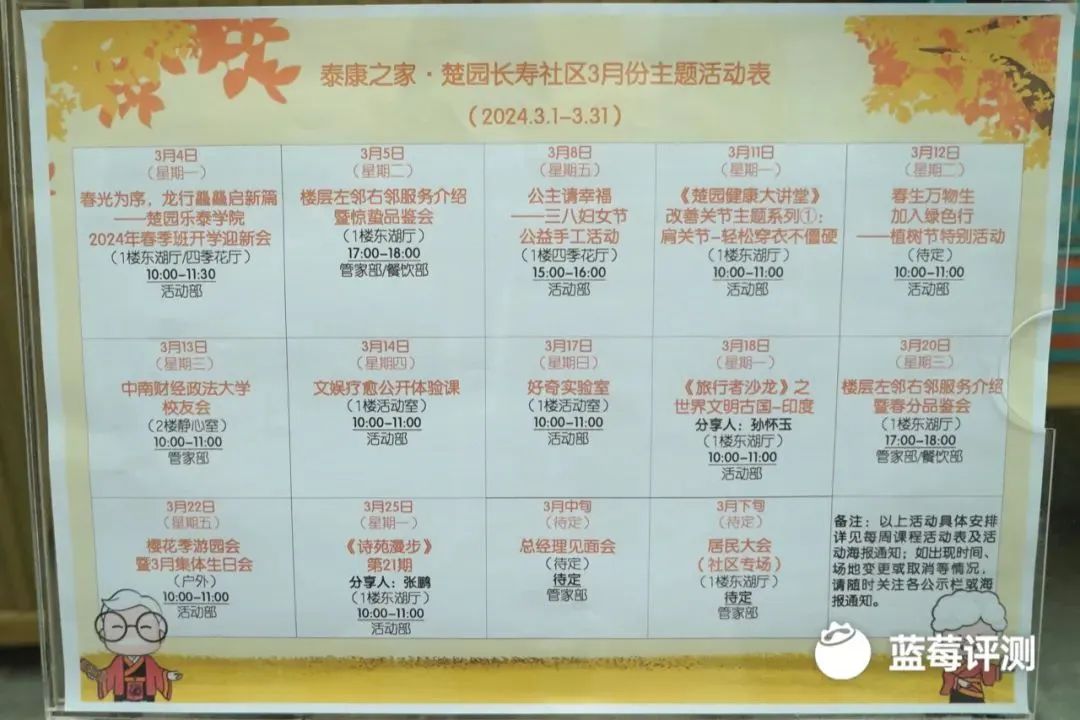 泰康之家·楚园长寿社区3月份主题活动表
（2024.3.1-3.31）
3月4日
（星期一）
春光为序，龙行龘龘启新篇
——楚园乐泰学院
2024年春季班开学迎新会
（1楼东湖厅/四季花厅）
10:00-11:30
活动部
3月5日
（星期二）
楼层左邻右邻服务介绍
暨惊蛰品鉴会
（1楼东湖厅）
17:00-18:00
管家部/餐饮部
3月8日
（星期五）
公主请幸福
——三八妇女节
公益手工活动
（1楼四季花厅）
15:00-16:00
活动部
3月11日
（星期一）
《楚园健康大讲堂》
改善关节主题系列①：
肩关节-轻松穿衣不僵硬
（1楼东湖厅）
10:00-11:00
活动部
3月12日
（星期二）
春生万物生
加入绿色行
——植树节特别活动
（待定）
10:00-11:00
活动部
3月13日
（星期三）
中南财经政法大学
校友会
（2楼静心室）
10:00-11:00
管家部
3月14日
（星期四）
文娱疗愈公开体验课
（1楼活动室）
10:00-11:00
活动部
3月17日
（星期日）
好奇实验室
（1楼活动室）
10:00-11:00
活动部
3月18日
（星期一）
《旅行者沙龙》之
世界文明古国-印度
分享人：孙怀玉
（1楼东湖厅）
10:00-11:00
活动部
3月20日
（星期三）
楼层左邻右邻服务介绍
暨春分品鉴会
（1楼东湖厅）
17:00-18:00
管家部/餐饮部
3月22日
（星期五）
樱花季游园会
暨3月集体生日会
（户外）
10:00-11:00
活动部
3月25日
（星期一）
《诗苑漫步》
第21期
分享人：张鹏
（1楼东湖厅）
10:00-11:00
活动部
3月中旬
（待定）
总经理见面会
（待定）
待定
管家部
3月下旬
（待定）
居民大会
（社区专场）
（1楼东湖厅）
待定
管家部
备注：以上活动具体安排
详见每周课程活动表及活
动海报通知；如出现时间、
场地变更或取消等情况，
请随时关注各公示栏或海
报通知。
蓝莓评测